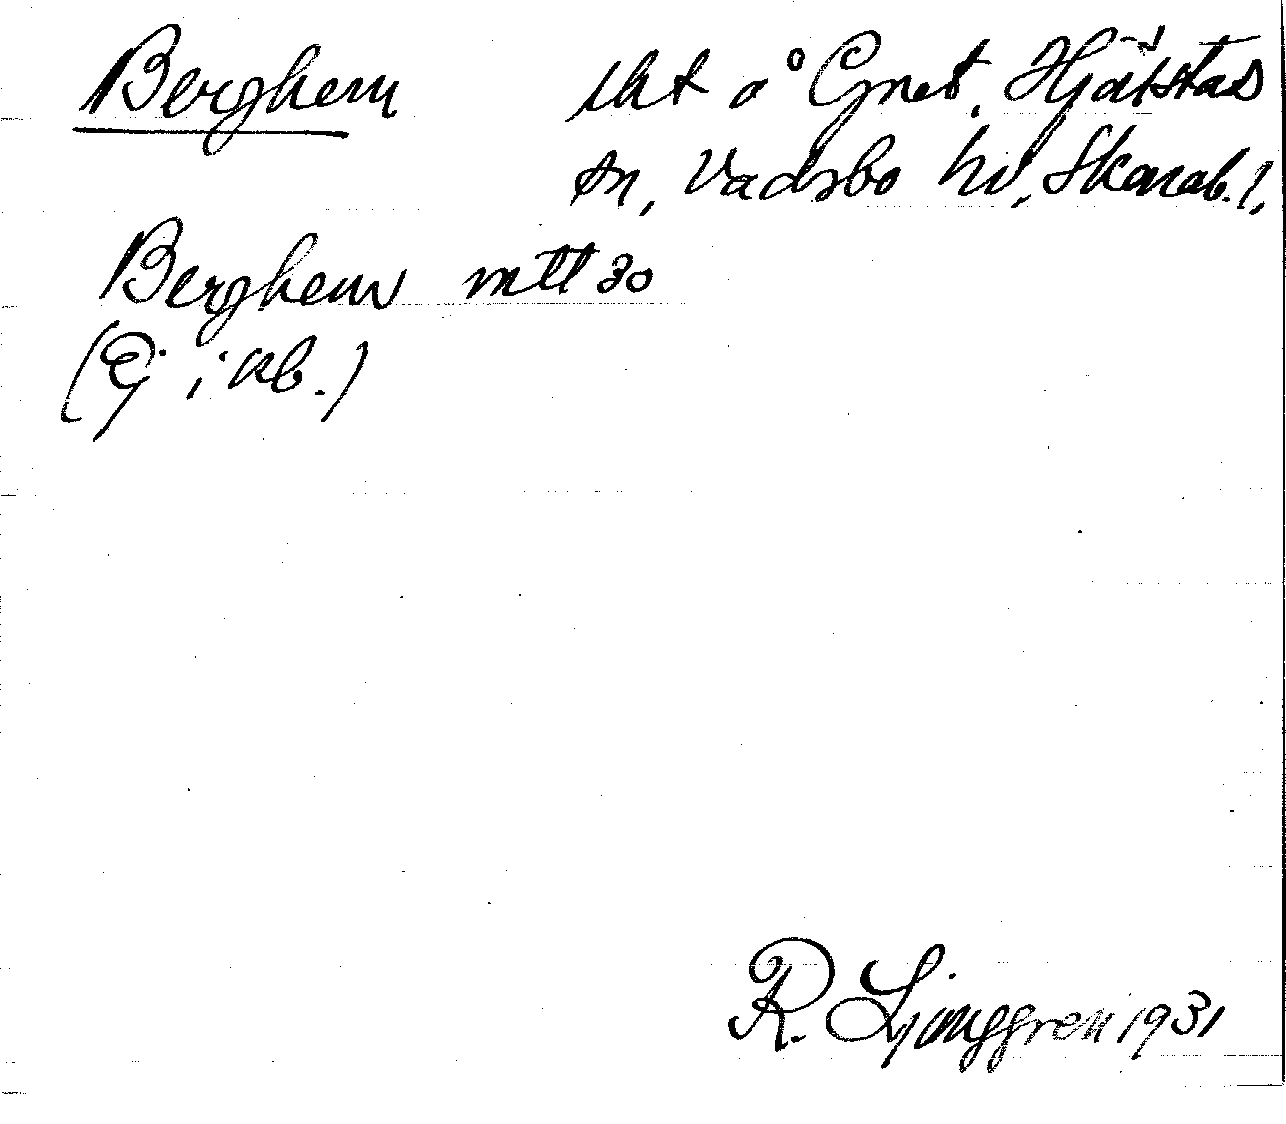 Berghem lht å Gnet, Hjälstad
sn, Vadsbo hd, Skarab. l.
Berghem mtl 30
(Ej i kb.)
R. Ljunggren 1931